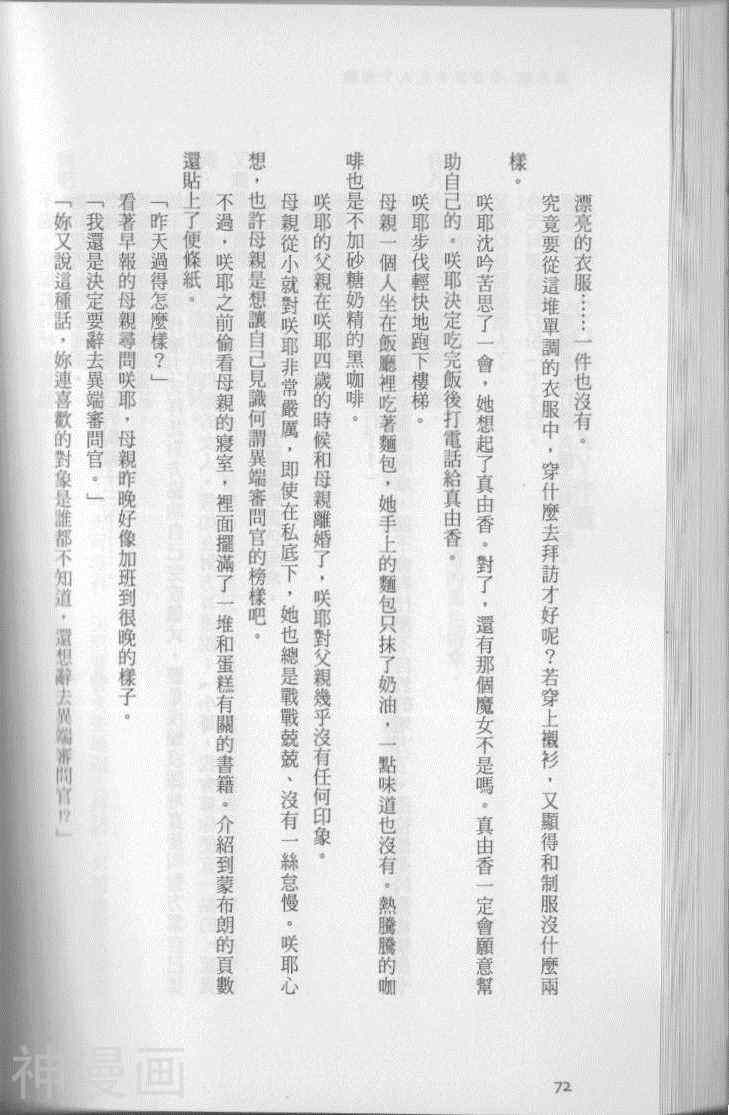 漂亮的衣服……一件也沒有。
究竟要從這堆單調的衣服中，穿什麼去拜訪才好呢？若穿上襯衫，又顯得和制服沒什麼兩
樣。
咲耶沈吟苦思了一會，她想起了真由香。對了，還有那個魔女不是嗎。真由香一定會願意幫
助自己的。咲耶決定吃完飯後打電話給真由香。
咲耶步伐輕快地跑下樓梯。
母親一個人坐在飯廳裡吃著麵包，她手上的麵包只抹了奶油，一點味道也沒有。熱騰騰的咖
啡也是不加砂糖奶精的黑咖啡。
咲耶的父親在咲耶四歲的時候和母親離婚了，咲耶對父親幾乎沒有任何印象。
母親從小就對咲耶非常嚴厲，即使在私底下，她也總是戰戰兢兢、沒有一絲怠慢。咲耶心
想，也許母親是想讓自己見識何謂異端審問官的榜樣吧。
不過，咲耶之前偷看母親的寢室，裡面擺滿了一堆和蛋糕有關的書籍。介紹到蒙布朗的頁數
還貼上了便條紙。
「昨天過得怎麼樣？」
看著早報的母親尋問咲耶，母親昨晚好像加班到很晚的樣子。
「我還是決定要辭去異端審問官。」
「妳又說這種話，妳連喜歡的對象是誰都不知道，還想辭去異端審問官!?」
72
神漫画